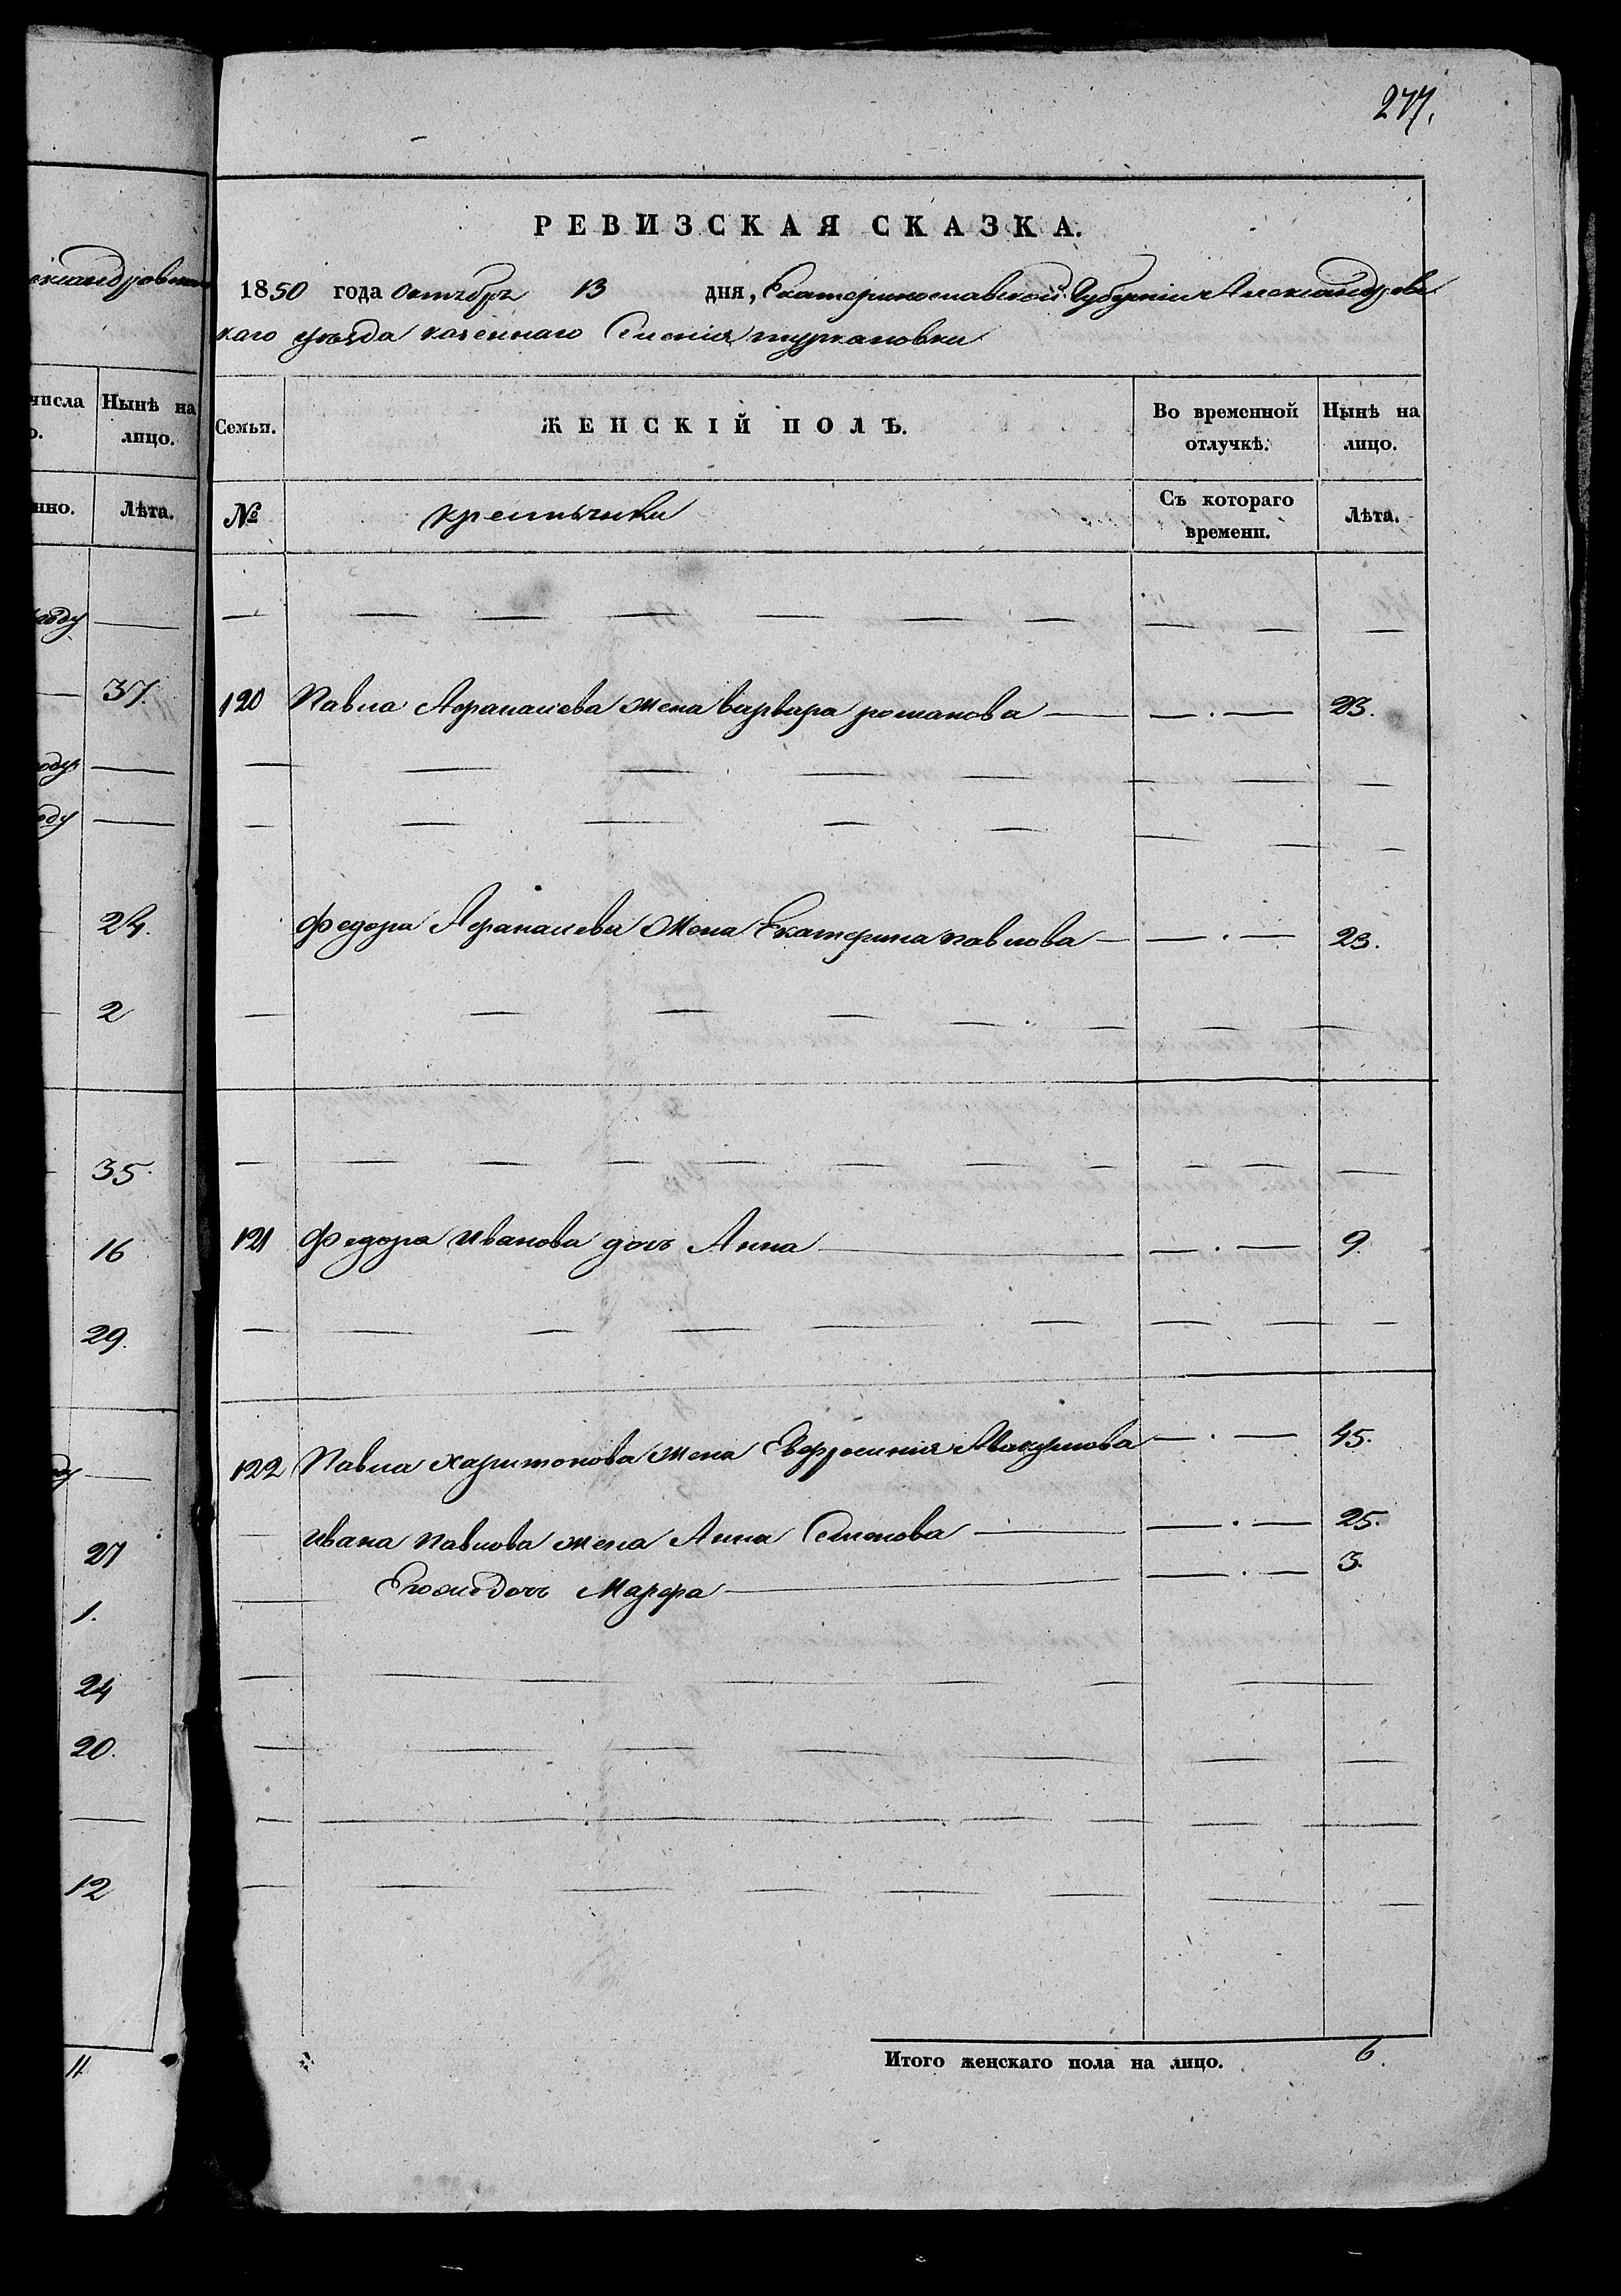 277.
РЕВИЗСКАЯ СКАЗКА.
1850 года октября 13 дня, Екатеринославской Губернии Александровс
каго уезда казеннаго Селения туркановки
числа Нынѣ на
лицо.
нно. Лѣта.
Семьи. ЖЕНСКІЙ ПОЛЪ. Во временной Нынѣ на
отлучкѣ. лицо.
№ Съ котораго Лѣта.
времени.
году —
37.
оду —
оду —
24.
2
35.
16
29.
27
1.
24
20.
12
11
120 Павла Афанасиева жена варвара романова — — . — 23.
Федора Афанасиева жена Екатерина павлова — — . — 23.
121 Федора иванова дочь Анна — — . — 9.
122 Павла харитонова жена Евфросиния Авакумова — . — 45.
ивана павлова жена Анна Семенова — — . — 25.
Егоже дочь Марфа — — . — 3.
Итого женскаго пола на лицо. 6.